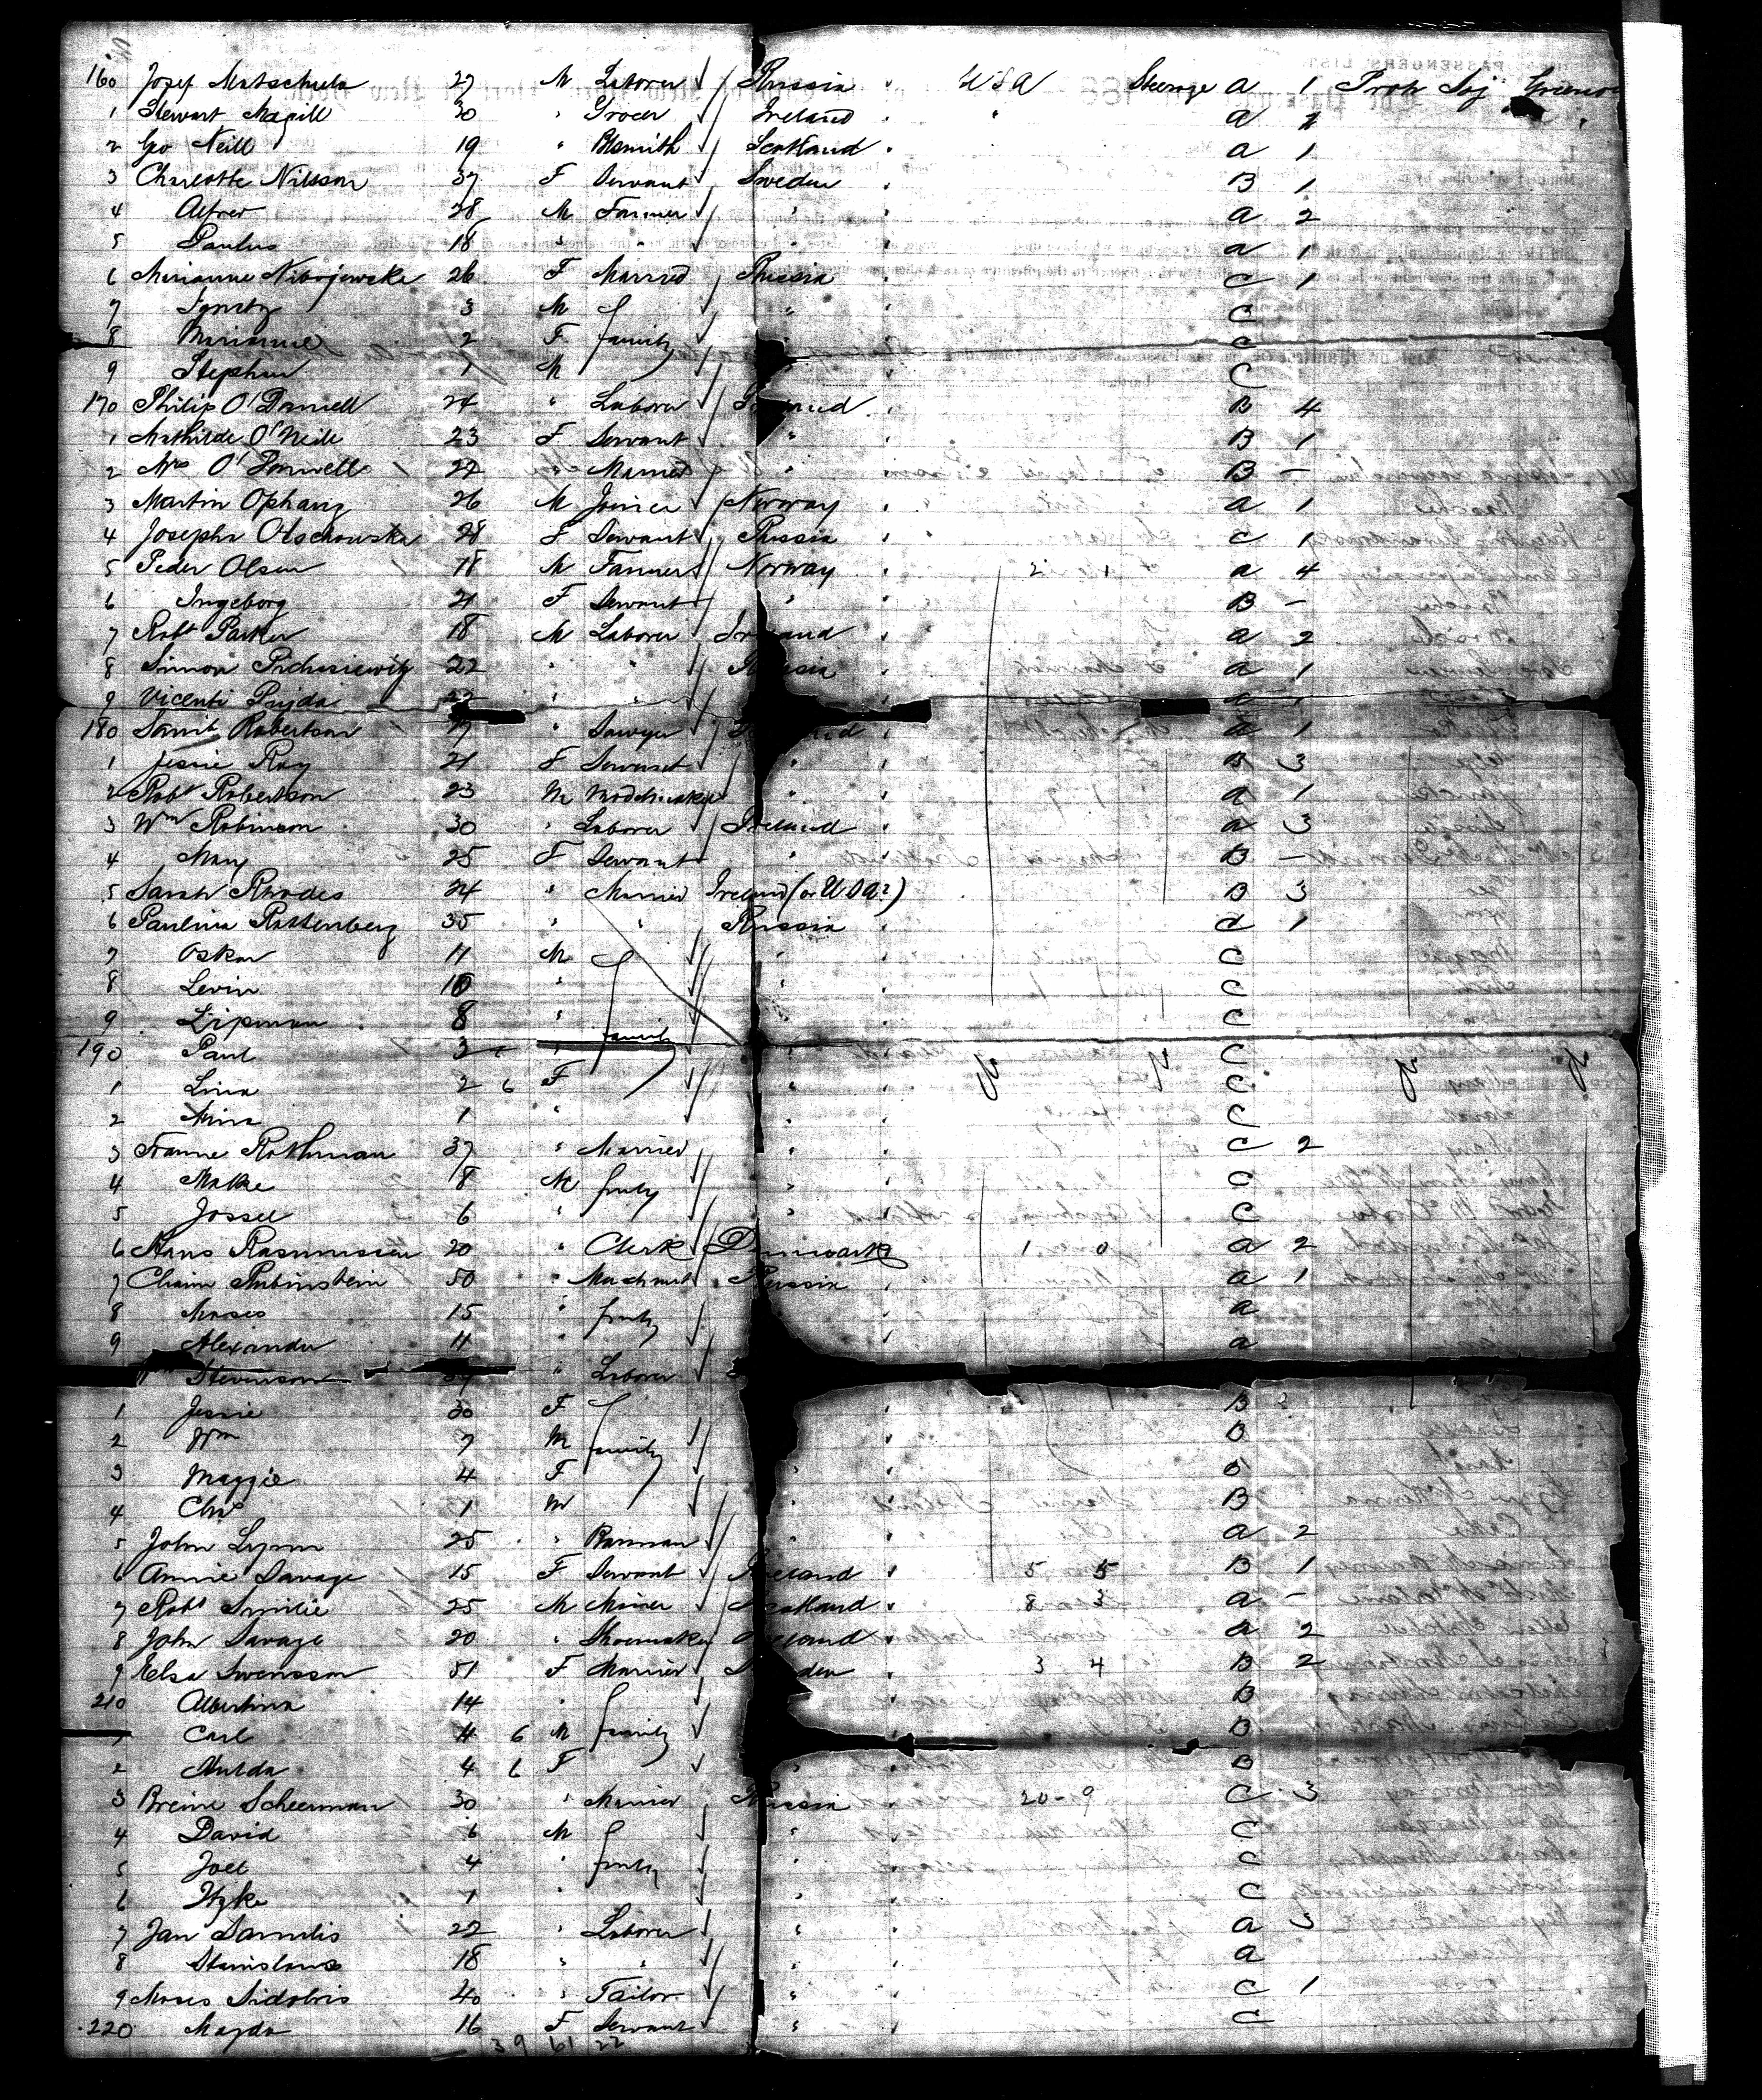 160 Josef Matschula 27 M Laborer Russia " USA Steerage A 1 Protr Soj
1 Stewart Magill 30 " Grocer Ireland " " A 1 "
2 Geo Neill 19 " Blsmith Scotland " A 1
3 Charlotte Nilsson 37 F Servant Sweden " B 1
4 Alfred 28 M Farmer " " A 2
5 Paulus 18 " " " " A 1
6 Marianne 26 F Married Russia " C 1
7 3 M " " C
8 Marianne 2 F family C
9 Stephan 1 M " C
170 Philip O'Donnell 24 " Laborer " B 4
1 Mathilde O'Neill 23 F Servant " " B 1
2 Mrs O'Donnell 22 " Married " " B -
3 Martin Ophang 26 M Joiner Norway " A 1
4 Josepha 28 F Servant Russia " C 1
5 Peder Olsen 18 M Farmer Norway " 2 1 A 4
6 Ingeborg 21 F Servant " " B -
7 Robt Parker 18 M Laborer Ireland " A 2
8 Simon 22 " " Russia " A 1
9 Vicenti Pujda 22 " "
180 Saml Robertson 17 " Sawyer " A 1
1 Jessie Roy 21 F Servant " " B 3
2 Robt Robertson 23 M " " A 1
3 Wm Robinson 30 " Laborer Ireland " A 3
4 Mary 25 F Servant " " B -
5 Sarah Rhodes 24 " Married Ireland (or USA?) B 3
6 Paulina Rottenberg 35 " " Russia " C 1
7 Oskar 11 M " " C
8 Levin 10 " " " C
9 Lipman 8 " family " C
190 Paul 3 " " C
1 Lina 2 6 F " " C
2 Mina 1 " " " C
3 Fanne Rothman 37 " Married " " C 2
4 8 M family " " C
5 Jossel 6 " " " C
6 Hans Rasmussen 20 " Clerk Denmark " 1 0 A 2
7 Chaim Rubinstein 50 " Russia " A 1
8 Moses 15 " family " A
9 Alexander 11 " " A
Stevenson " Laborer
1 Jessie 30 F " B
2 Wm 7 M family " B
3 Maggie 4 F " " B
4 Chs 1 M " " B
5 John Lynn 25 " Barman " " A 2
6 Annie Savage 15 F Servant Ireland " 5 5 B 1
7 Robt Smilie 25 M Miner Scotland " 8 3 A -
8 John Savage 20 " Shoemaker Ireland " A 2
9 Elsa Swensson 51 F Married Sweden " 3 4 B 2
210 Albertina 14 " " B
Carl 11 6 M family " B
2 Hulda 4 6 F " " B
3 Breine Scheerman 30 " Married Russia " 20 - 9 C 3
4 David 6 M " " C
5 Joel 4 " family " " C
6 Itzke 1 " " " C
7 Jan Samulis 22 " Laborer " " A 3
8 Stanislaus 18 " " " " A
9 Moses 40 " Tailor " " C 1
220 Magda 16 F Servant " C
39 61 22